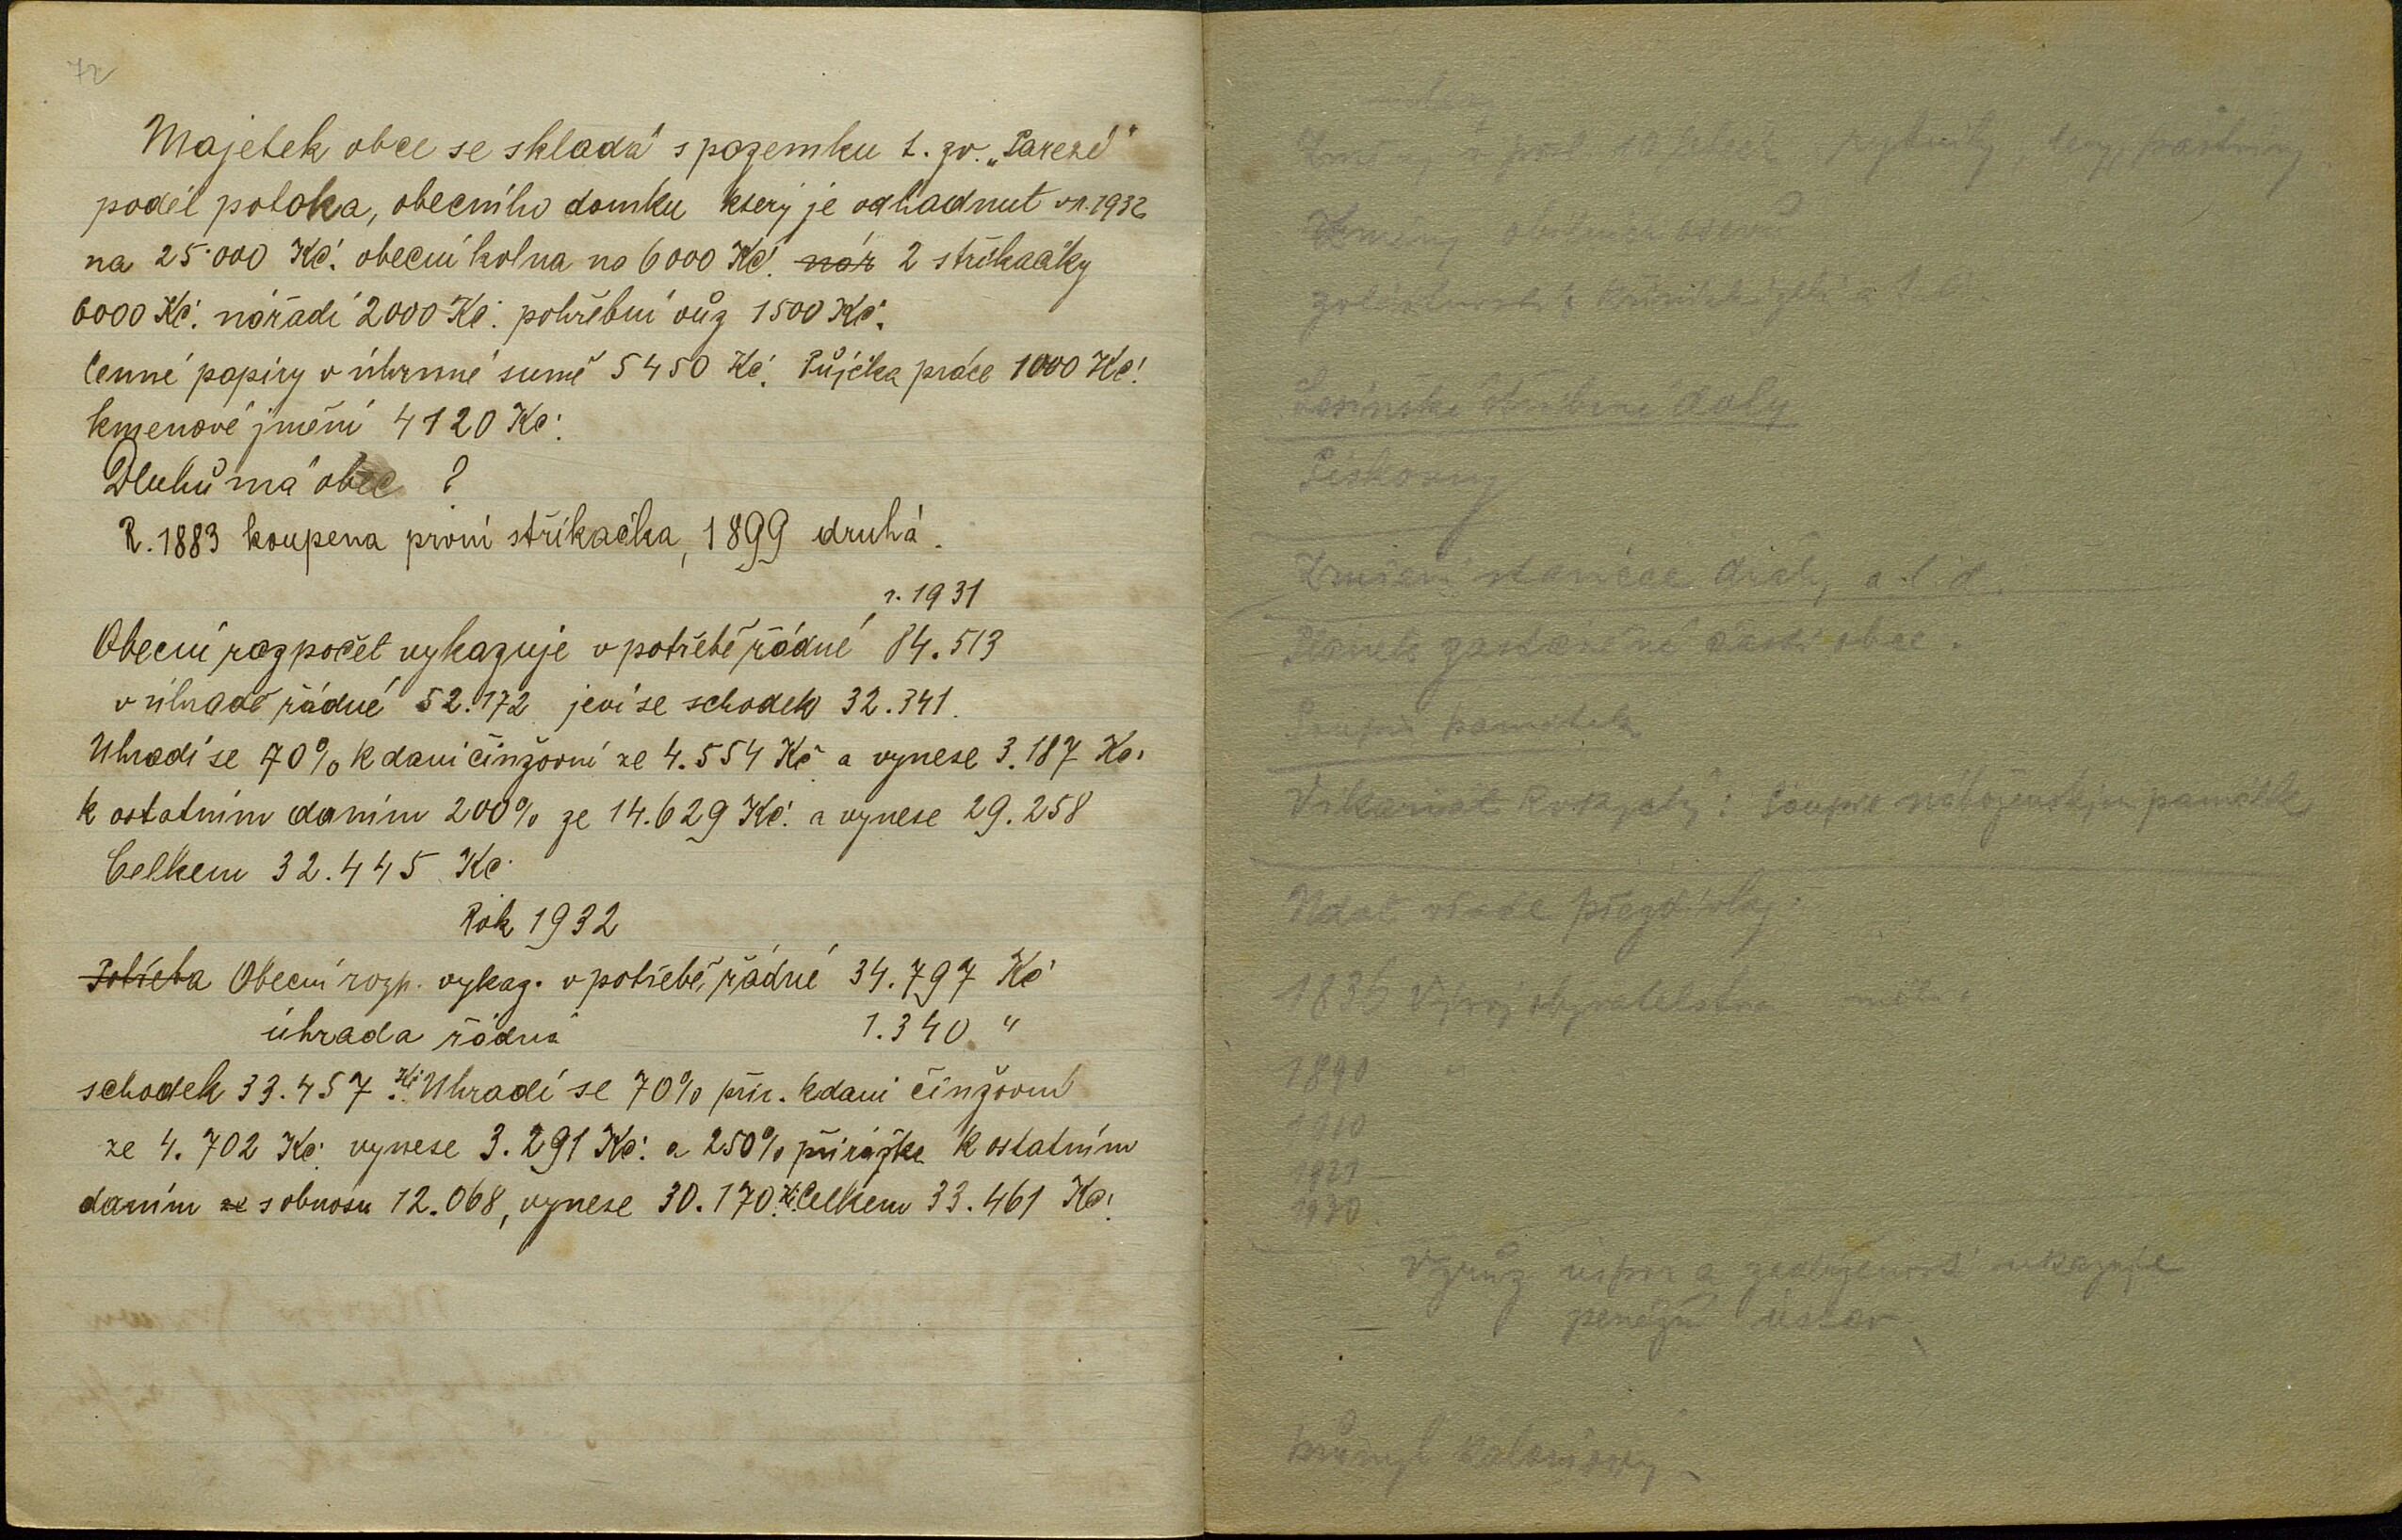 72
Majetek obce se skládá s pozemku t. zv. „Pařezí"
podél potoka, obecního domku který je odhadnut v r. 1932
na 25.000 Kč. obecní kolna na 6000 Kč. nář 2 stříkačky
6000 Kč. nářadí 2000 Kč. pohřební vůz 1500 Kč.
Cenné papiry v úhrnné sumě 5450 Kč. Půjčka práce 1000 Kč.
kmenové jmění 4120 Kč.
Dluhů má obec ?
R. 1883 koupena první stříkačka, 1899 druhá.
r. 1931
Obecní rozpočet vykazuje v potřebě řádné 84.513
v úhradě řádné 52.172 jeví se schodek 32.341.
Uhradí se 70% k dani činžovní ze 4.554 Kč a vynese 3.187 Kč.
k ostatním daním 200% ze 14.629 Kč. a vynese 29.258
Celkem 32.445 Kč.
Rok 1932
Potřeba Obecní rozp. vykaz. v potřebě řádné 34.797 Kč
úhrada řádná 1.340 "
schodek 33.457 Kč. Uhradí se 70% přir. k dani činžovní
ze 4.702 Kč. vynese 3.291 Kč. a 250% přirážka k ostatním
daním ze s obnosu 12.068, vynese 30.170 Kč. Celkem 33.461 Kč.
pastviny
Změny
stříbrné doly
Pískovny
stanice dráhy a. t. d.
části obce.
Soupis památek
Vikariát Rokycaný : Soupis náboženským památek
Udat všade přezdívky.
1836 Vývoj obyvatelstva
1890 "
1910
1921
1930.
Vzrůz úspor a zadluženost ukazuje
peněžní ústav